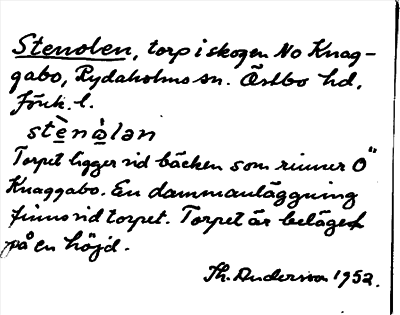 Stenolen, torp i skogen No Knag-
gabo, Rydaholms sn. Östbo hd,
Jönk. l.
stènòlan
Torpet ligger vid bäcken som rinner Ö"
Knaggabo. En dammanläggning
finns vid torpet. Torpet är beläget
på en höjd.
Th. Anderson 1952.